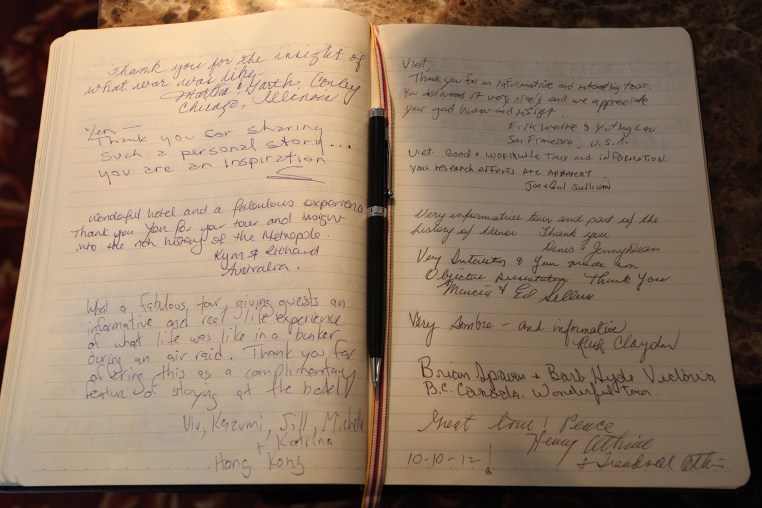 Thank you for the insight of
what war was like.
Martha & Garth Conley
Chicago, Illinois
Thank you for sharing
such a personal story...
you are an inspiration
Wonderful hotel and a fabulous experience
Thank you Yan for your tour and insight
into the rich history of the Metropole.
Kym & Richard
Australia.
What a fabulous tour, giving guests an
informative and real life experience
of what life was like in a bunker
during an air raid. Thank you for
offering this as a complimentary
feature of staying at the hotel!
Viv, Kazumi, Jill, Michelle
+ Katrina
Hong Kong
Viet,
Thank you for an informative and tour.
You delivered it very nicely and we appreciate
your good humor and insight.
Erik
San Francisco, U.S.A.
Viet: Good & worthwhile Tour and information.
Your research efforts are apparent.
Sullivan
Very informative tour and part of the
history of Hanoi. Thank you
Denis & Jenny Dean
Very Interesting & Given made an
Objective Presentation Thank You
Marcia & Ed Sellers
Very Sombre - and informative
Claydon
Brian Spawn & Barb Hyde Victoria
B.C. Canada. Wonderful tour.
Great tour! Peace
Henny
10-10-12!